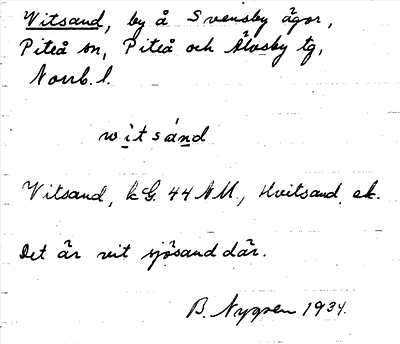 Witsand, by å Svensby ägor,
Piteå sn, Piteå och Älvsby tg,
Norrb. l.
witsánd
Vitsand, kG. 44 NU., Hvitsand ek.
Det är vit sjösand där.
B. Nygren 1934.